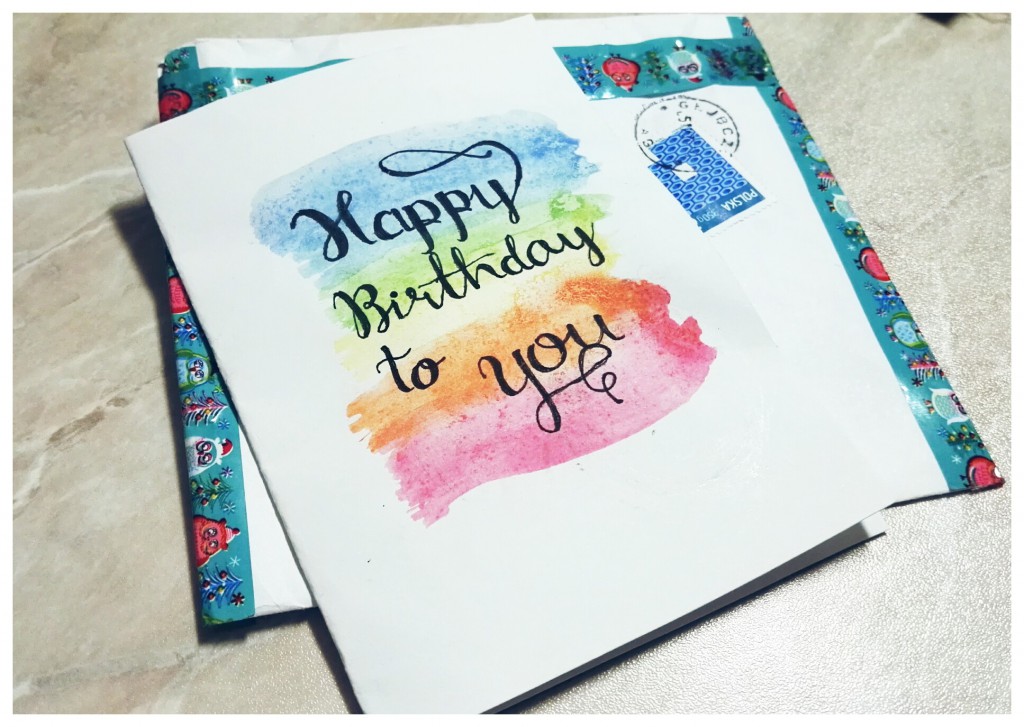 Happy
Birthday
to you
POLSKA
350g